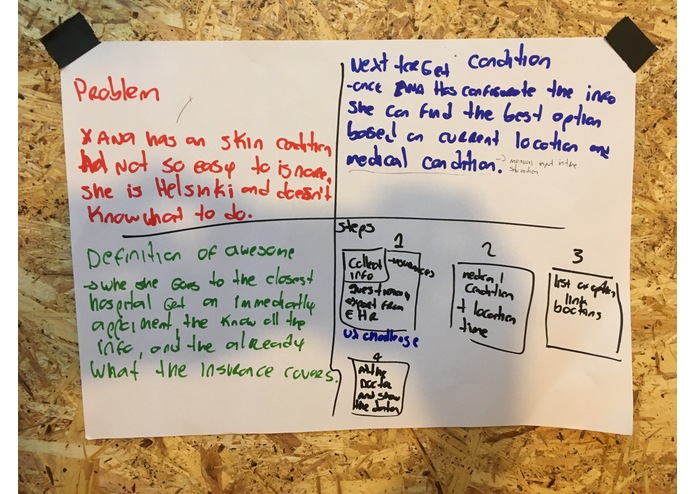 Problem
X ANA has an skin condition
Not so easy to ignore,
she is Helsinki and doesn't
Know what to do.
Next target condition
-once ANA Has configurate the info
She can find the best option
based on current location and
medical condition.
Definition of awesome
→ Whe she Goes to the closest
hospital Get an immediatly
the know all the
info, and the already
what the insurance covers.
steps
1
Collect
info
-insurances
export from
EHR
UX challenge
2
medical
condition
+ location
time
3
list of option
link
4
Doctor
and show
the data